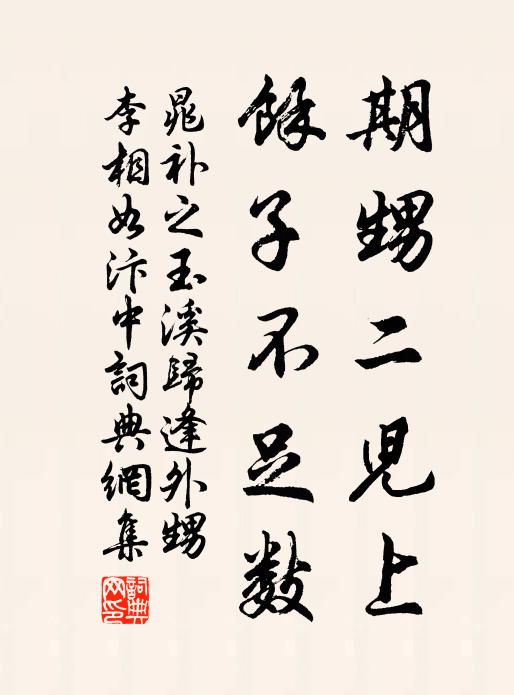 期甥二児上
餘子不足数
晁补之玉溪歸逢外甥
李相如汴中詞典網集
詞典网印